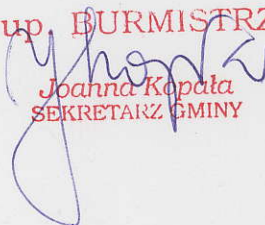 up. BURMISTRZ
Joanna Kopała
SEKRETARZ GMINY